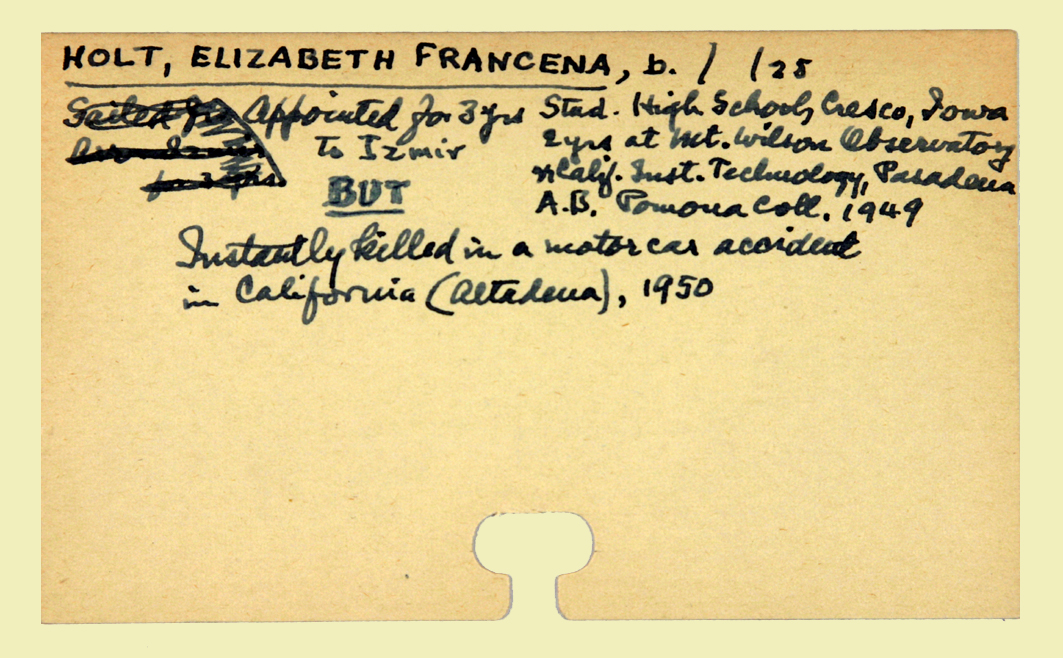 HOLT, ELIZABETH FRANCENA, b. / /25
Sailed for Appointed for 3 yrs Stud. High School, Cresco, Iowa
To Izmir 2 yrs at Mt. Wilson Observatory
for 3 yrs. BUT Calif. Inst. Technology, Pasadena
A.B. Pomona Coll. 1949
Instantly killed in a motor car accident
in California (Altadena), 1950